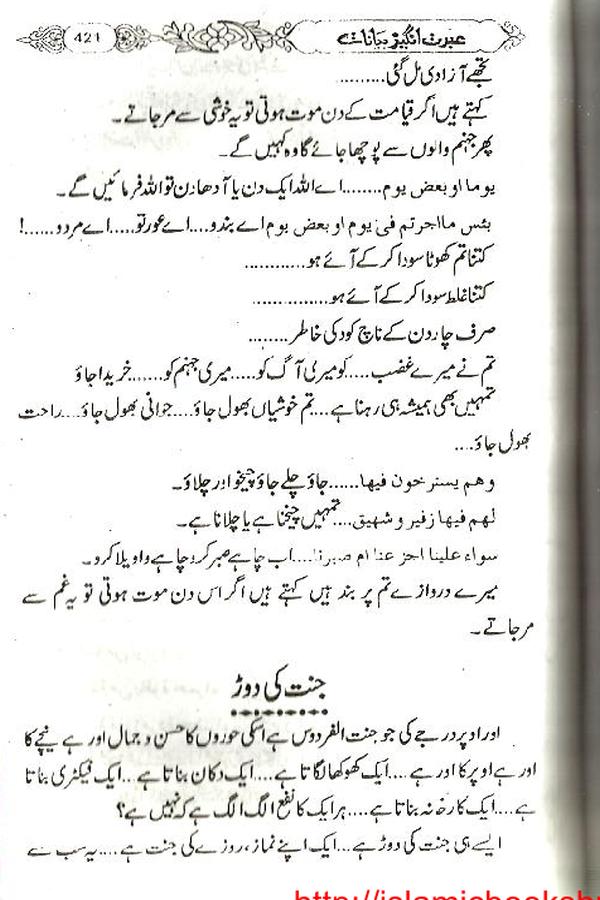 عبرت انگیز بیانات
421
تجھے آزادی مل گئی.........
کہتے ہیں اگر قیامت کے دن موت ہوتی تو یہ خوشی سے مر جاتے۔
پھر جہنم والوں سے پوچھا جائے گا وہ کہیں گے۔
یوما او بعض یوم........اے اللہ ایک دن یا آدھا دن تو اللہ فرمائیں گے۔
بئس ما اجرتم فی یوم او بعض یوم اے بندو....اے عورتو.....اے مردو......!
کتنا تم کھوٹا سودا کر کے آئے ہو............
کتنا غلط سودا کر کے آئے ہو...............
صرف چار دن کے ناچ کود کی خاطر........
تم نے میرے غضب.....کو میری آگ کو.....میری جہنم کو......خریدا جاؤ
تمہیں بھی ہمیشہ ہی رہنا ہے....تم خوشیاں بھول جاؤ....جوانی بھول جاؤ....راحت
بھول جاؤ....
وھم یسترخون فیھا......جاؤ چلے جاؤ چیخو اور چلاؤ۔
لھم فیھا زفیر و شھیق....تمہیں چیخنا ہے یا چلانا ہے۔
سواء علینا اجز عنا ام صبرنا....اب چاہے صبر کرو چاہے واویلا کرو۔
میرے دروازے تم پر بند ہیں کہتے ہیں اگر اس دن موت ہوتی تو یہ غم سے
مر جاتے۔
جنت کی دوڑ
اور اوپر درجے کی جو جنت الفردوس ہے اسکی حوروں کا حسن و جمال اور ہے نیچے کا
اور ہے اوپر کا اور ہے....ایک کھوکھا لگاتا ہے....ایک دکان بناتا ہے...ایک فیکٹری بناتا
ہے....ایک کارخانہ بناتا ہے....ہر ایک کا نفع الگ الگ ہے کہ نہیں ہے؟
ایسے ہی جنت کی دوڑ ہے...ایک اپنے نماز، روزے کی جنت ہے....یہ سب سے